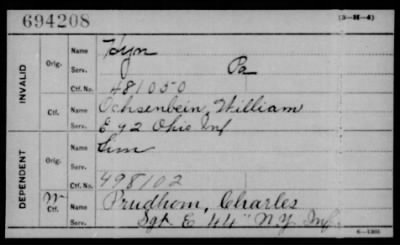 694208
(3-H-4)
INVALID
Orig. Name
Serv. Pa
Ctf. No. 481050
Ctf. Name Ochsenbein, William
Serv. E 92 Ohio Inf
DEPENDENT
Orig. Name
Serv.
Ctf. No. 498102
Ctf. Name Prudhom, Charles
Serv. Sgt. E 44" N.Y. Inf.